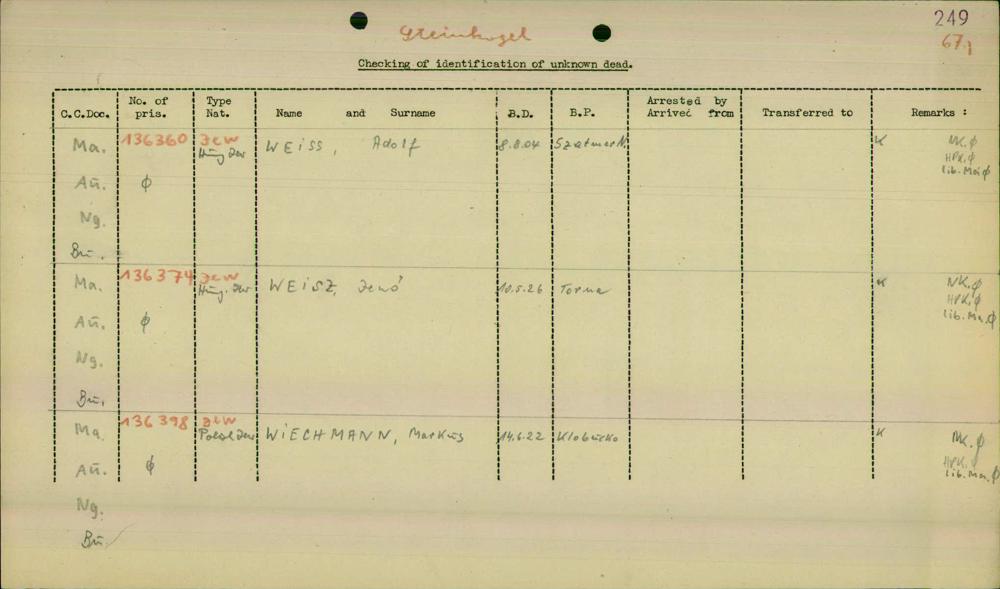 249
Steinkogel
67,
Checking of identification of unknown dead.
C.C.Doc. No. of pris. Type Nat. Name and Surname B.D. B.P. Arrested by Arrived from Transferred to Remarks :
Ma. 136360 Jew Hung Jew WEiSS, Adolf 8.8.04 K NK.ϕ
HPK.ϕ
Aü. ϕ lib. ϕ
Ng.
Bü.
Ma. 136374 Jew Hung. Jew WEiSZ, Jenő 10.5.26 Torna K NK.ϕ
HPK.ϕ
Aü. ϕ lib. Ma.ϕ
Ng.
Bü.
Ma. 136398 Jew WiECHMANN, Markus 14.6.22 Klobucko K NK.ϕ
HPK.
Aü. ϕ lib. Ma.ϕ
Ng.
Bü.